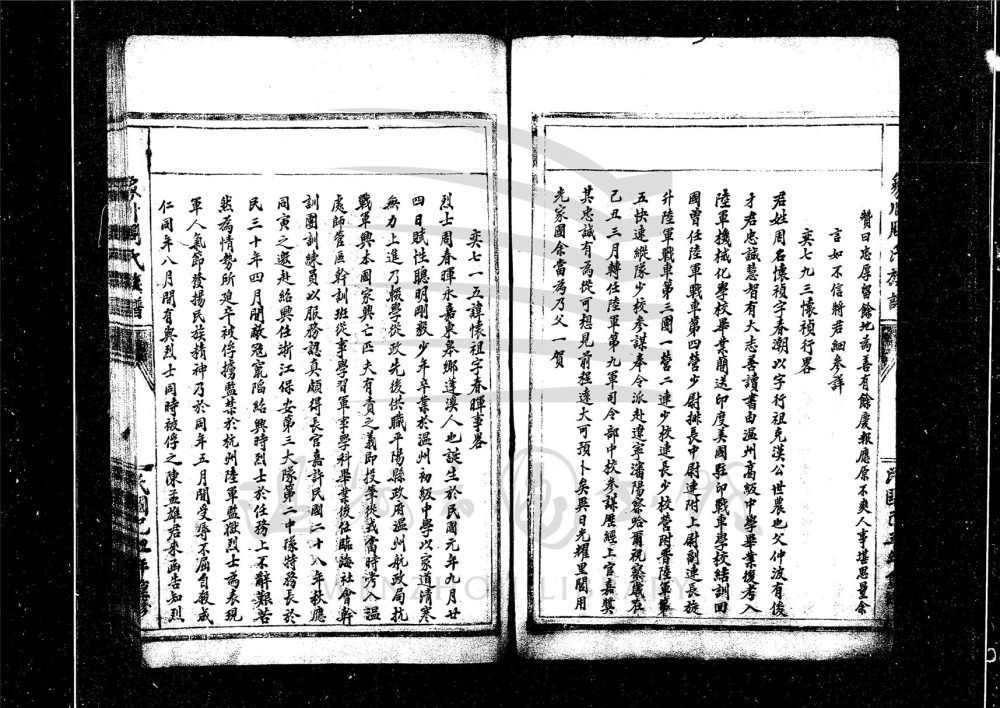 贊曰忠厚留餘地為善有餘慶報應原不爽人事堪思量余
言如不信將君細參詳
奕七九三懷禎行畧
君姓周名懷禎字春潮以字行祖克漢公世農也父仲波有俊
才君忠誠慧智有大志善讀書由温州高級中學畢業後考入
陸軍機械化學校畢業蘭送印度美國駐印戰軍學校結訓回
國曾任陸軍戰車第四營少尉排長中尉連附上尉副連長旋
升陸軍戰車第三團一營二連少校連長少校營附晋陸軍第
五快速縱隊少校參謀奉令派赴遼寧瀋陽察哈爾視察歲在
己丑三月轉任陸軍第九軍司令部中校參謀歷經上官嘉奬
其忠誠有為從可想見前程遠大可預卜矣異日光耀里閭用
光家國余當為乃父一賀
奕七一五諱懷祖字春暉事畧
烈士周春暉永嘉東皋鄉蓬溪人也誕生於民國元年九月廿
四日賦性聰明剛毅少年卒業於温州初級中學以家道清寒
無力上進乃輟學從政先後供職平陽縣政府温州航政局抗
戰軍興本國家興亡匹夫有責之義即投筆從戎當時考入温
處師管區幹訓班從事學習軍事學科畢業後任臨海社會幹
訓團訓練員以服務認真頗得長官嘉許民國二十八年秋應
同寅之邀赴紹興任浙江保安第三大隊第二中隊特務長於
民三十年四月間敵冦竄陷紹興時烈士於任務上不辭艱苦
然為情勢所廹卒被俘擄監禁於杭州陸軍監獄烈士為表現
軍人氣節發揚民族精神乃於同年五月間受辱不屈自殺成
仁同年八月間有與烈士同時被俘之陳孟雄君來函告知烈
氏族譜
民國己丑年
WENZHOU LIBRARY